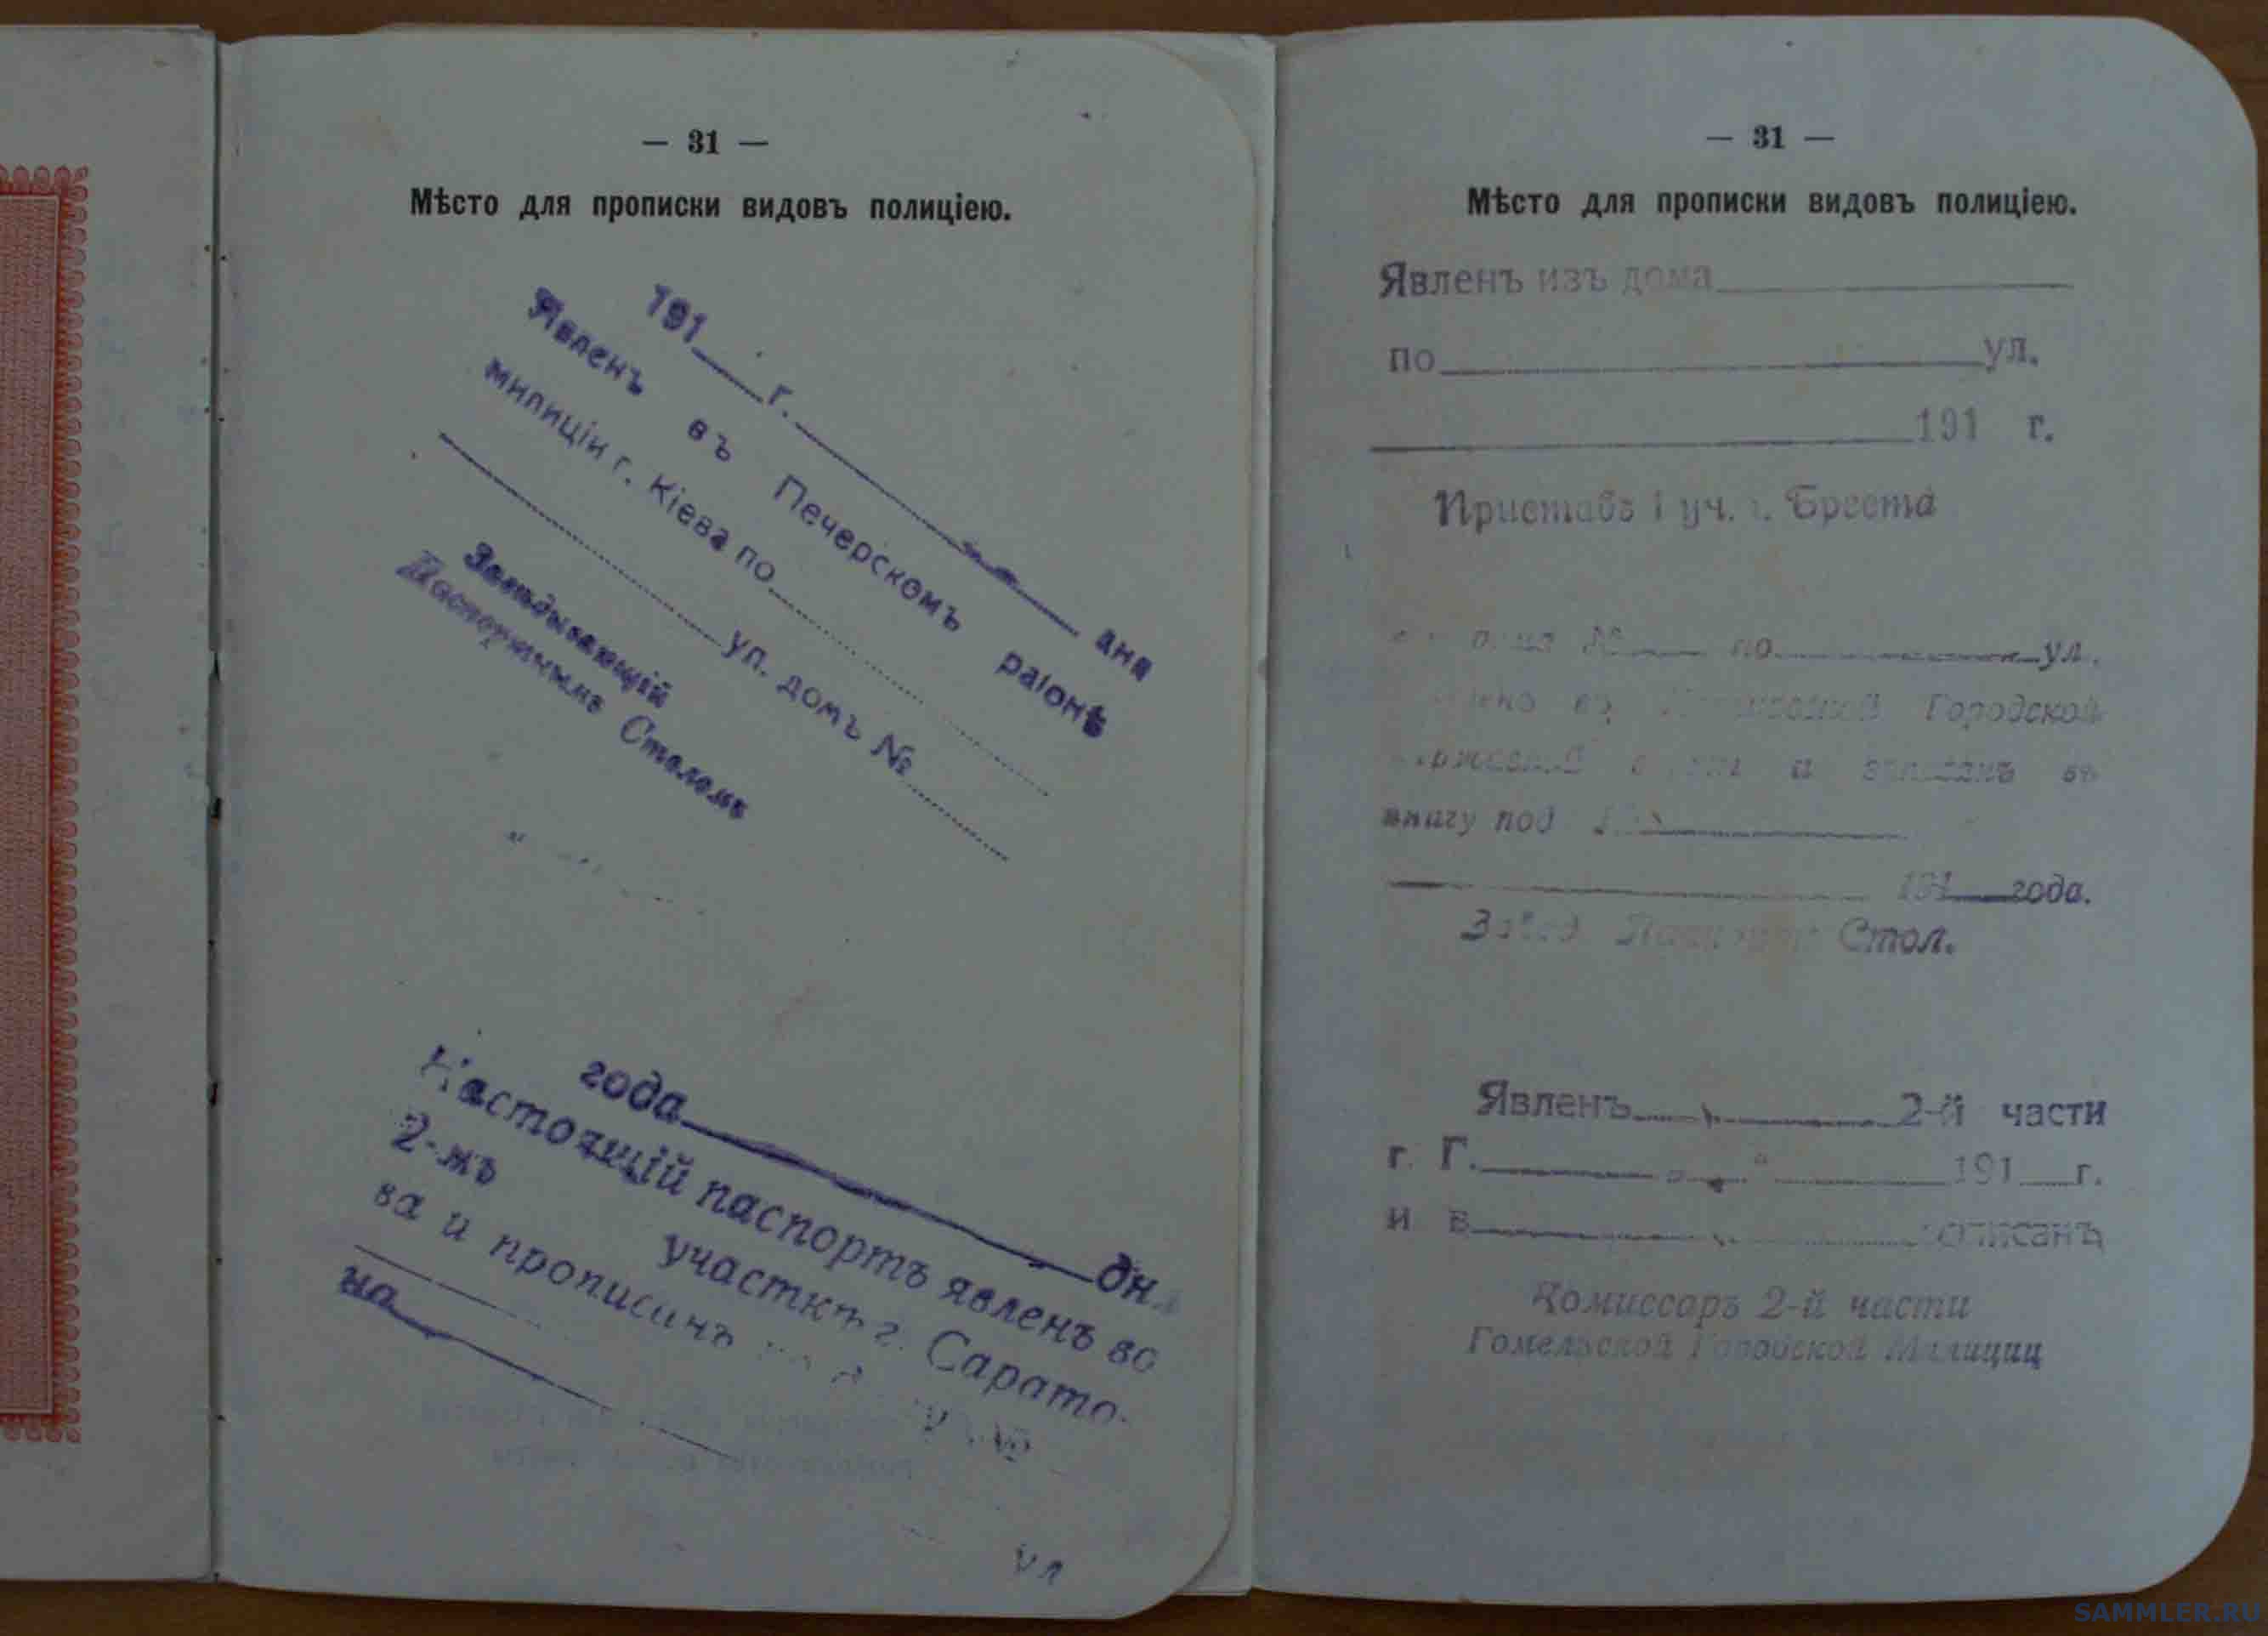 — 31 —
Мѣсто для прописки видовъ полиціею.
191 г. дня
Явленъ въ Печерскомъ раіонѣ
милиціи г. Кіева по
ул. домъ №
Завѣдывающій
Паспортнымъ Столомъ
года дн
Настоящій паспортъ явленъ во
2-мъ участкѣ г. Сарато-
ва и прописанъ
на
ул
— 31 —
Мѣсто для прописки видовъ полиціею.
Явленъ изъ дома
по ул.
191 г.
Приставъ 1 уч. г. Бреста
№ по ул.
въ Городской
и записанъ въ
книгу под
191 года.
Стол.
Явленъ 2-й части
г. Г. 191 г.
и в
Комиссаръ 2-й части
Гомельской Городской Милиции
SAMMLER.RU